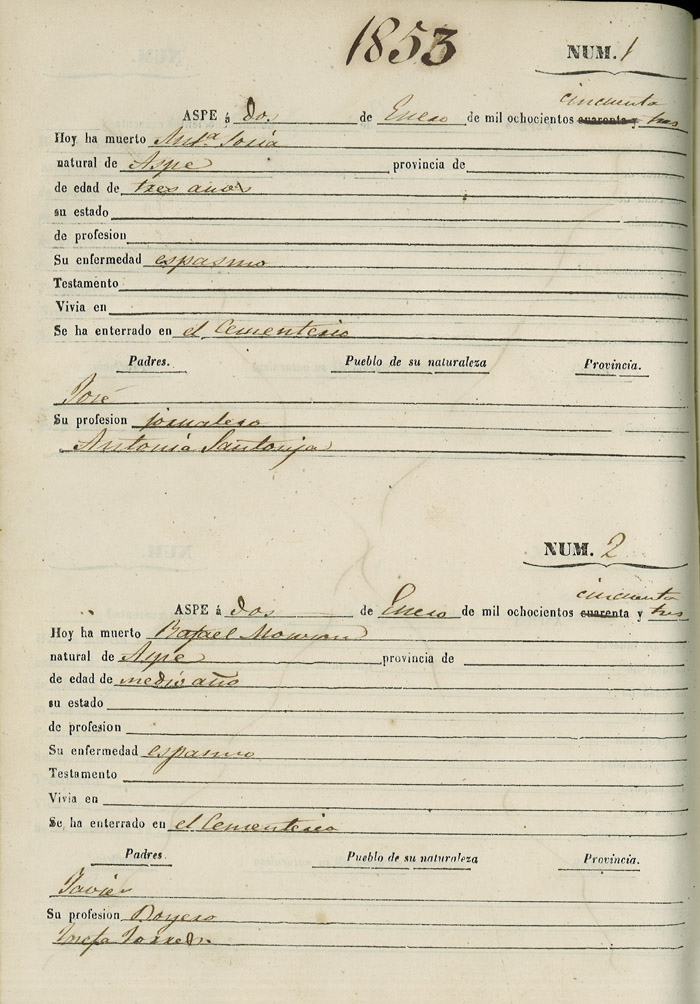 1853
NUM. 1
cincuenta
ASPE á dos de Enero de mil ochocientos cuarenta y tres
Hoy ha muerto Antª Soria
natural de Aspe provincia de
de edad de tres años
su estado
de profesion
Su enfermedad espasmo
Testamento
Vivia en
Se ha enterrado en el Cementerio
Padres. Pueblo de su naturaleza Provincia.
José
Su profesion jornalero
Antonia Santonja
NUM. 2
cincuenta
ASPE á dos de Enero de mil ochocientos cuarenta y tres
Hoy ha muerto Rafael
natural de Aspe provincia de
de edad de medio año
su estado
de profesion
Su enfermedad espasmo
Testamento
Vivia en
Se ha enterrado en el Cementerio
Padres. Pueblo de su naturaleza Provincia.
Javier
Su profesion
Josefa Torres